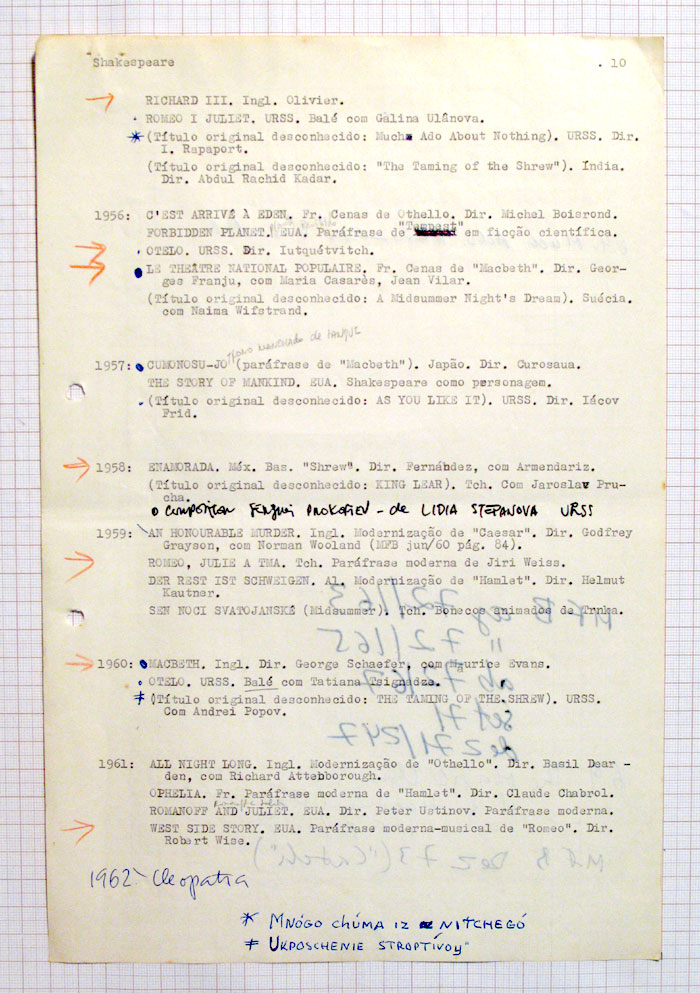 Shakespeare . 10
RICHARD III. Ingl. Olivier.
ROMEO I JULIET. URSS. Balé com Galina Ulânova.
* (Título original desconhecido: Much Ado About Nothing). URSS. Dir.
I. Rapaport.
(Título original desconhecido: "The Taming of the Shrew"). Índia.
Dir. Abdul Rachid Kadar.
1956: C'EST ARRIVÉ À EDEN. Fr. Cenas de Othello. Dir. Michel Boisrond.
"Tempest"
FORBIDDEN PLANET. EUA. Paráfrase de em ficção científica.
OTELO. URSS. Dir. Iutquétvitch.
LE THEÂTRE NATIONAL POPULAIRE. Fr. Cenas de "Macbeth". Dir. Geor-
ges Franju, com Maria Casarès, Jean Vilar.
(Título original desconhecido: A Midsummer Night's Dream). Suécia.
com Naima Wifstrand.
TRONO MANCHADO DE SANGUE
1957: CUMONOSU-JO (paráfrase de "Macbeth"). Japão. Dir. Curosaua.
THE STORY OF MANKIND. EUA. Shakespeare como personagem.
(Título original desconhecido: AS YOU LIKE IT). URSS. Dir. Iácov
Frid.
1958: ENAMORADA. Méx. Bas. "Shrew". Dir. Fernández, com Armendariz.
(Título original desconhecido: KING LEAR). Tch. Com Jaroslav Pru-
cha.
O COMPOSITOR SERGUEI PROKOFIEV - de LIDIA STEPANOVA URSS
1959: AN HONOURABLE MURDER. Ingl. Modernização de "Caesar". Dir. Godfrey
Grayson, com Norman Wooland (MFB jun/60 pág. 84).
ROMEO, JULIE A TMA. Tch. Paráfrase moderna de Jiri Weiss.
DER REST IST SCHWEIGEN. Al. Modernização de "Hamlet". Dir. Helmut
Kautner.
SEN NOCI SVATOJANSKÉ (Midsummer). Tch. Bonecos animados de Trnka.
1960: MACBETH. Ingl. Dir. George Schaefer, com Maurice Evans.
OTELO. URSS. Balé com Tatiana Tsignádze.
≠ (Título original desconhecido: THE TAMING OF THE SHREW). URSS.
Com Andrei Popov.
1961: ALL NIGHT LONG. Ingl. Modernização de "Othello". Dir. Basil Dear -
den, com Richard Attebborough.
OPHELIA. Fr. Paráfrase moderna de "Hamlet". Dir. Claude Chabrol.
ROMANOFF AND JULIET. EUA. Dir. Peter Ustinov. Paráfrase moderna.
WEST SIDE STORY. EUA. Paráfrase moderna-musical de "Romeo". Dir.
Robert Wise.
1962: Cleopatra
* MNÓGO CHÚMA IZ NITCHEGÓ
≠ UKPOSCHENIE STROPTÍVOY"